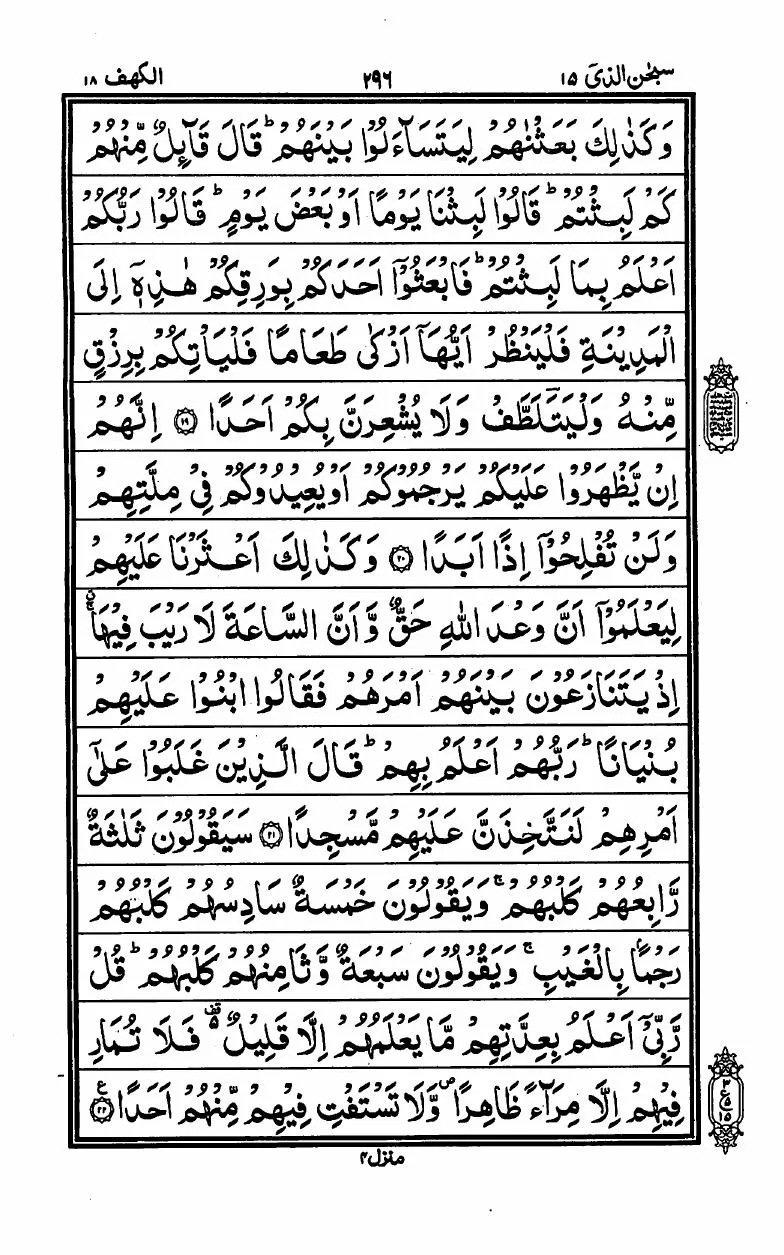 سبحٰن الذی ۱۵
۲۹۶
الکهف ۱۸
وَكَذٰلِكَ بَعَثْنٰهُمْ لِيَتَسَآءَلُوْا بَيْنَهُمْ ؕ قَالَ قَآئِلٌ مِّنْهُمْ
كَمْ لَبِثْتُمْ ؕ قَالُوْا لَبِثْنَا يَوْمًا اَوْ بَعْضَ يَوْمٍ ؕ قَالُوْا رَبُّكُمْ
اَعْلَمُ بِمَا لَبِثْتُمْ ؕ فَابْعَثُوْۤا اَحَدَكُمْ بِوَرِقِكُمْ هٰذِهٖۤ اِلَى
الْمَدِيْنَةِ فَلْيَنْظُرْ اَيُّهَاۤ اَزْكٰى طَعَامًا فَلْيَاْتِكُمْ بِرِزْقٍ
مِّنْهُ وَلْيَتَلَطَّفْ وَلَا يُشْعِرَنَّ بِكُمْ اَحَدًا ﴿۱۹﴾ اِنَّهُمْ
اِنْ يَّظْهَرُوْا عَلَيْكُمْ يَرْجُمُوْكُمْ اَوْ يُعِيْدُوْكُمْ فِيْ مِلَّتِهِمْ
وَلَنْ تُفْلِحُوْۤا اِذًا اَبَدًا ﴿۲۰﴾ وَكَذٰلِكَ اَعْثَرْنَا عَلَيْهِمْ
لِيَعْلَمُوْۤا اَنَّ وَعْدَ اللّٰهِ حَقٌّ وَّاَنَّ السَّاعَةَ لَا رَيْبَ فِيْهَا
اِذْ يَتَنَازَعُوْنَ بَيْنَهُمْ اَمْرَهُمْ فَقَالُوا ابْنُوْا عَلَيْهِمْ
بُنْيَانًا ؕ رَبُّهُمْ اَعْلَمُ بِهِمْ ؕ قَالَ الَّذِيْنَ غَلَبُوْا عَلٰۤى
اَمْرِهِمْ لَنَتَّخِذَنَّ عَلَيْهِمْ مَّسْجِدًا ﴿۲۱﴾ سَيَقُوْلُوْنَ ثَلٰثَةٌ
رَّابِعُهُمْ كَلْبُهُمْ ۚ وَيَقُوْلُوْنَ خَمْسَةٌ سَادِسُهُمْ كَلْبُهُمْ
رَجْمًۢا بِالْغَيْبِ ۚ وَيَقُوْلُوْنَ سَبْعَةٌ وَّثَامِنُهُمْ كَلْبُهُمْ ؕ قُلْ
رَّبِّيْۤ اَعْلَمُ بِعِدَّتِهِمْ مَّا يَعْلَمُهُمْ اِلَّا قَلِيْلٌ ۫ فَلَا تُمَارِ
فِيْهِمْ اِلَّا مِرَآءً ظَاهِرًا ۪ وَّلَا تَسْتَفْتِ فِيْهِمْ مِّنْهُمْ اَحَدًا ﴿۲۲﴾
۳
ع
۵
۱۵
منزل۴